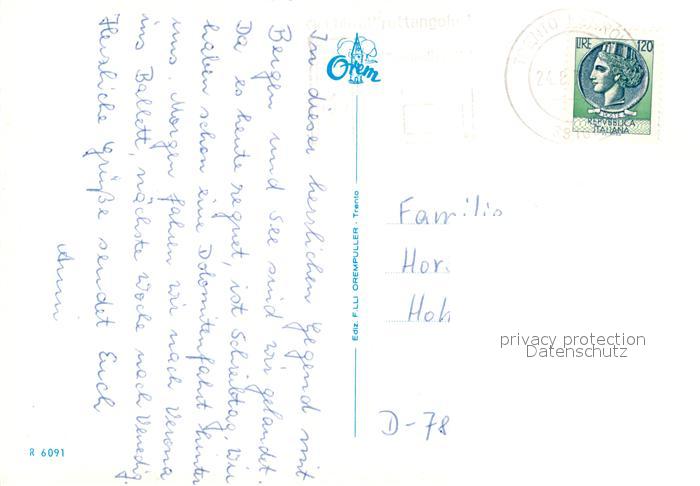 In dieser herrlichen Gegend mit
Bergen und See sind wir gelandet.
Da es heute regnet, ist Schreibtag. Wir
haben schon eine Dolomitenfahrt hinter
uns. Morgen fahren wir nach Verona
ins Ballett, nächste Woche nach Venedig.
Herzliche Grüße sendet Euch
Orem
LIRE 120
POSTE
REPVBBLICA
ITALIANA
Trento
24.8
rettangolo
Ediz. F.LLI OREMPULLER - Trento
Familie
Hor
Hoh
privacy protection
Datenschutz
D-78
R 6091